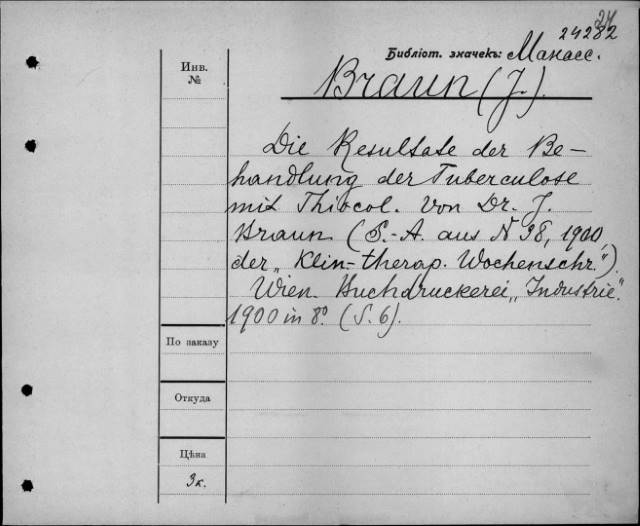 24
24282
Библіот. значекъ: Манасс.
Инв.
№
Braun (J.).
Die Resultate der Be-
handlung der Tuberculose
mit Thiocol. Von Dr. J.
Braun (S.-A. aus N 38, 1900,
der „Klin.-therap. Wochenschr.")
Wien. Buchdruckerei „Industrie".
1900 in 8° (S. 6).
По заказу
Откуда
Цѣна
3к.